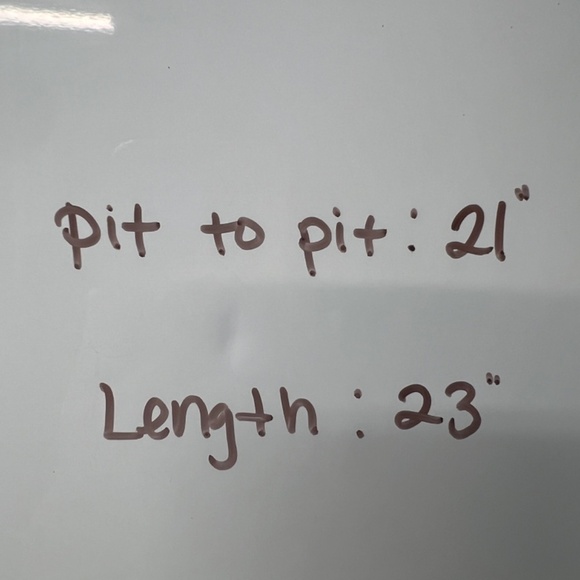 Pit to pit: 21"
Length: 23"